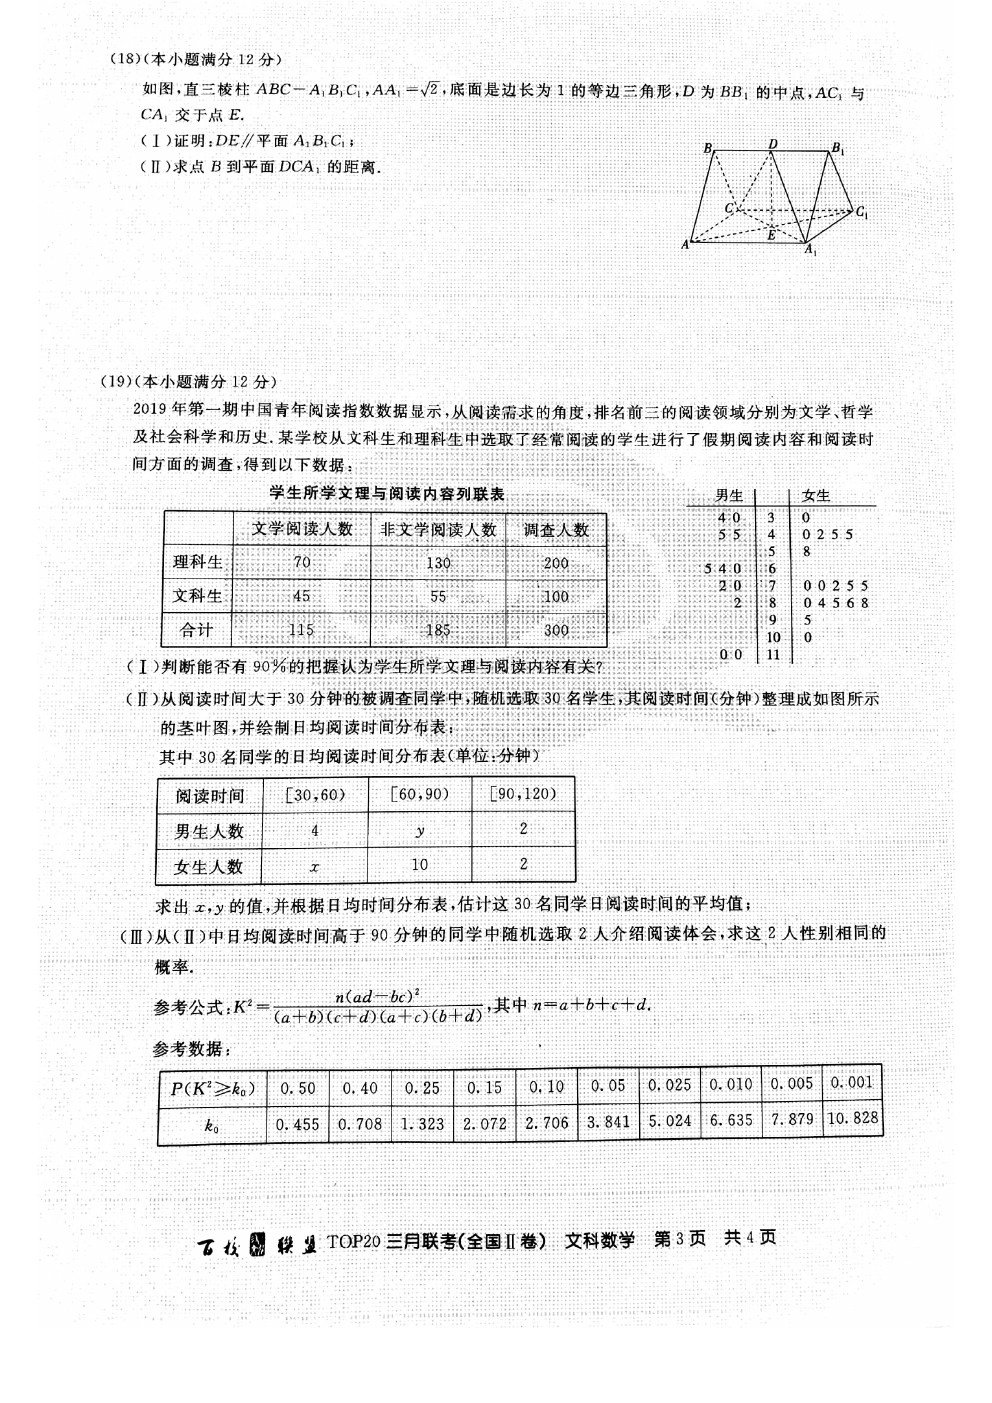 (18)(本小题满分 12 分)
如图,直三棱柱 ABC－A₁B₁C₁,AA₁＝√2,底面是边长为 1 的等边三角形,D 为 BB₁ 的中点,AC₁ 与
CA₁ 交于点 E.
(Ⅰ)证明:DE∥平面 A₁B₁C₁;
(Ⅱ)求点 B 到平面 DCA₁ 的距离.
B D B₁
C C₁
A E A₁
(19)(本小题满分 12 分)
2019 年第一期中国青年阅读指数数据显示,从阅读需求的角度,排名前三的阅读领域分别为文学、哲学
及社会科学和历史.某学校从文科生和理科生中选取了经常阅读的学生进行了假期阅读内容和阅读时
间方面的调查,得到以下数据:
学生所学文理与阅读内容列联表
文学阅读人数 非文学阅读人数 调查人数
理科生 70 130 200
文科生 45 55 100
合计 115 185 300
男生 女生
4 0 3 0
5 5 4 0 2 5 5
5 8
5 4 0 6
2 0 7 0 0 2 5 5
2 8 0 4 5 6 8
9 5
10 0
0 0 11
(Ⅰ)判断能否有 90%的把握认为学生所学文理与阅读内容有关?
(Ⅱ)从阅读时间大于 30 分钟的被调查同学中,随机选取 30 名学生,其阅读时间(分钟)整理成如图所示
的茎叶图,并绘制日均阅读时间分布表;
其中 30 名同学的日均阅读时间分布表(单位:分钟)
阅读时间 [30,60) [60,90) [90,120)
男生人数 4 y 2
女生人数 x 10 2
求出 x,y 的值,并根据日均时间分布表,估计这 30 名同学日阅读时间的平均值;
(Ⅲ)从(Ⅱ)中日均阅读时间高于 90 分钟的同学中随机选取 2 人介绍阅读体会,求这 2 人性别相同的
概率.
参考公式:K²＝n(ad－bc)²/(a＋b)(c＋d)(a＋c)(b＋d),其中 n＝a＋b＋c＋d.
参考数据:
P(K²≥k₀) 0.50 0.40 0.25 0.15 0.10 0.05 0.025 0.010 0.005 0.001
k₀ 0.455 0.708 1.323 2.072 2.706 3.841 5.024 6.635 7.879 10.828
百校联盟 TOP20 三月联考(全国Ⅱ卷) 文科数学 第 3 页 共 4 页